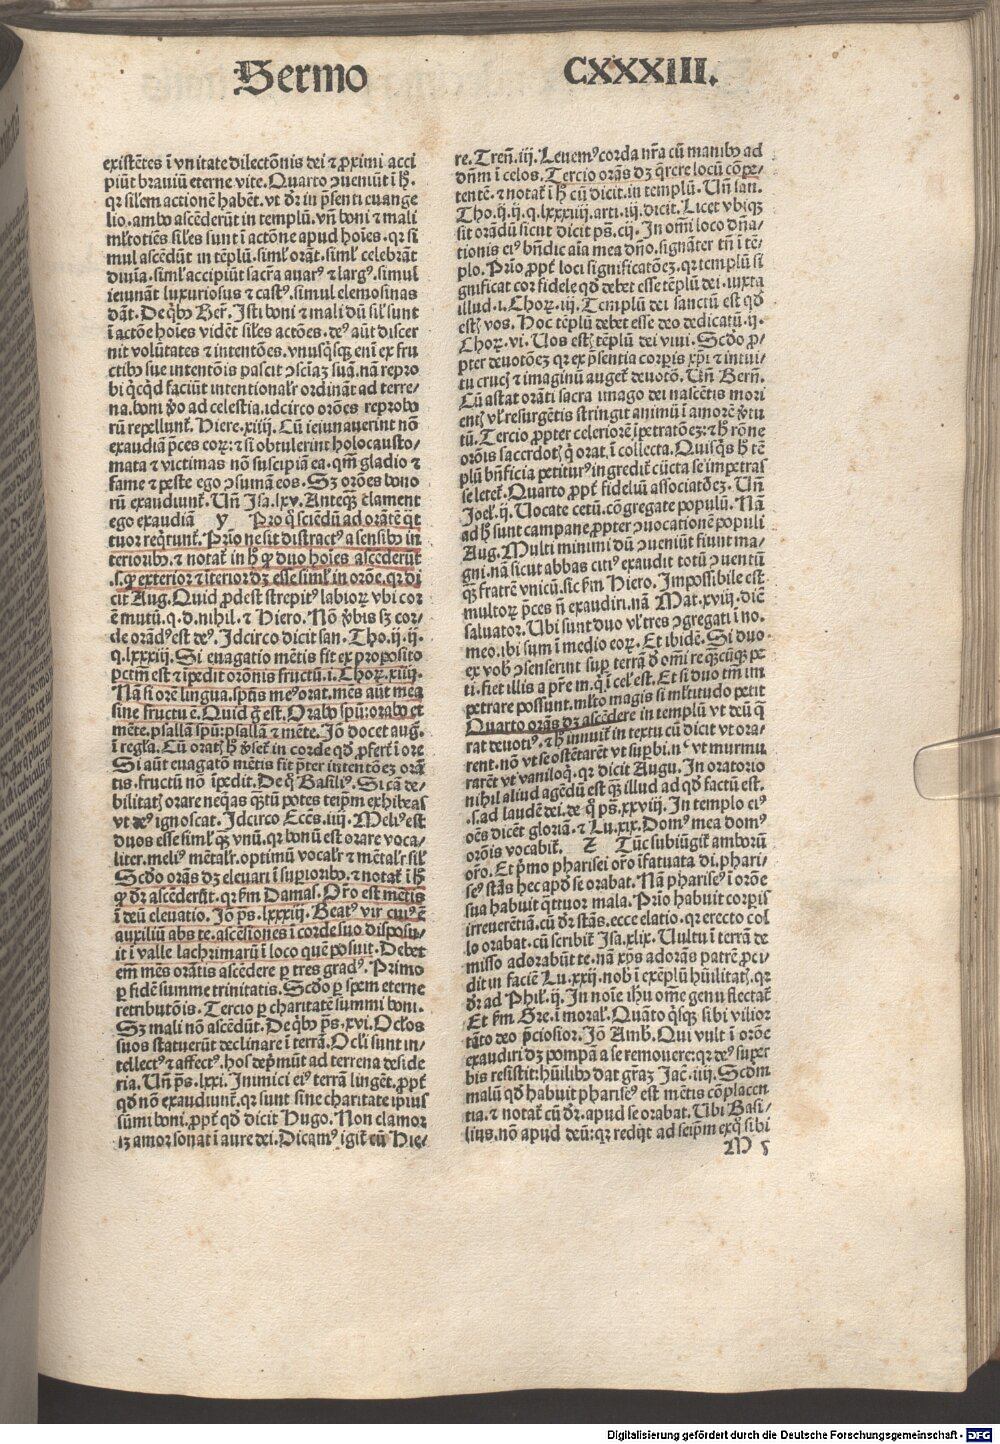 Sermo CXXXIIII.
existētes ī vnitate dilectōnis dei ⁊ ꝓximi acci
piūt braviū eterne vite. Quarto ꝯueniūt ī h̄.
qꝛ silem actionē habēt. vt dr̄ in p̄senti euange
lio. ambo ascēderūt in templū. vn̄ boni ⁊ mali
ml̓totiēs siles sunt ī actōne apud hoīes. qꝛ si
mul ascēdūt in tēplū. siml̓ orāt. siml̓ celebrāt
diuīa. siml̓ accipiūt sacr̄a auarꝰ ⁊ largꝰ. simul
ieiunāt luxuriosus ⁊ castꝰ. simul elemosinas
dāt. De qb̓ꝰ Ber. Isti boni ⁊ mali dū sil̓ sunt
ī actōe hoīes vidēt siles actōes. deꝰ aūt discer
nit volūtates ⁊ intentōes. vnusqͥsqꝫ enī ex fru
ctibꝰ sue intentōis pascit ꝯsciaꝫ suā. nā repro
bi qͥcqͥd faciūt intentional̓r ordināt ad terre⸗
na. boni ꝟo ad celestia. idcirco orōes reprobo
rū repellunt̄. Hiere. xiiij. Cū ieiunauerint nō
exaudiā p̄ces coꝝ: ⁊ si obtulerint holocausto⸗
mata ⁊ victimas nō suscipiā ea. qm̄ gladio ⁊
fame ⁊ peste ego ꝯsumā eos. Sꝫ orōes bono
rū exaudiunt̄. Un̄ Isa. lxv. Anteqꝫ clament
ego exaudiā y Pro qͦ sciendū ad orātē qͣt
tuor reqͥrunt̄. Prīo ne sit distractꝰ a sensibꝰ in
terioribꝰ. ⁊ notat̄ in h̄ ꝙ duo hoīes ascēderūt
.s. ꝙ exterior ⁊ īterior dꝫ esse siml̓ in orōe. qꝛ di
cit Aug. Quid ꝓdest strepitꝰ labioꝝ vbi cor
ē mutū. q. d. nihil. ⁊ Hiero. Nō ꝟbis sꝫ cor⸗
de orādꝰ est deꝰ. Idcirco dicit san. Tho. ij. ij.
q. lxxxiij. Si euagatio mētis fit ex proposito
pctm̄ est ⁊ īpedit orōnis fructū. i. Choꝝ. xiiij.
Nā si orē lingua. spūs meꝰ orat. mēs aūt mea
sine fructu ē. Quid ḡ est. Orabo spū: orabo et
mēte. psallā spū: psallā ⁊ mēte. Iō docet aug.
ī regl̓a. Cū oratꝭ h̄ ꝟset̄ in corde qd̓ ꝓfert̄ ī ore
Si aūt euagatō mētis fit p̄ter intentōeꝫ orā
tis. fructū nō īpedit. De qͦ Basiliꝰ. Si cā de⸗
bilitatꝭ orare neqͣas qͣꝫtū potes teipm̄ exhibeas
vt deꝰ ignoscat. Idcirco Eccs̄. iiij. Meliꝰ est
duos esse siml̓ qꝫ vnū. qꝛ bonū est orare voca⸗
liter. meliꝰ mētal̓r. optimū vocal̓r ⁊ mētal̓r sil̓
Scd̓o orās dꝫ eleuari ī supioribꝰ. ⁊ notat̄ ī h̄
ꝙ dr̄ ascēderūt. qꝛ ẜm Damas. Or̄o est mētis
ī deū eleuatio. Iō ps̄. lxxxiij. Beatꝰ vir cuiꝰ ē
auxiliū abs te. ascēsiones ī corde suo disposu⸗
it ī valle lachrimarū ī loco quē posuit. Debet
em̄ mēs orātis ascēdere ꝑ tres gradꝰ. Primo
ꝑ fidē summe trinitatis. Scd̓o ꝑ spem eterne
retributōis. Tercio ꝑ charitatē summi boni.
Sꝫ mali nō ascēdūt. De qb̓ꝰ ps̄. xvi. Oc̄los
suos statuerūt declinare ī terrā. Oc̄li sunt in⸗
tellectꝰ ⁊ affectꝰ. hos dep̄mūt ad terrena deside
ria. Un̄ ps̄. lxxi. Inimici eiꝰ terrā lingēt. ꝓpt̄
qd̓ nō exaudiunt̄. qꝛ sunt sine charitate ipius
sūmi boni. ꝓpt̄ qd̓ dicit Hugo. Non clamor
iꝫ amor sonat ī aure dei. Dicamꝰ igit̄ cū Hie⸗
re. Tren̄. iij. Leuemꝰ corda nr̄a cū manibꝰ ad
dn̄m ī celos. Tercio orās dꝫ qͣrere locū cōpe⸗
tentē. ⁊ notat̄ ī h̄ cū dicit. in templū. Un̄ san.
Tho. ij. ij. q. lxxxiiij. arti. iij. dicit. Licet vbiqꝫ
sit orādū sicut dicit ps̄. cij. In om̄i loco dn̄a⸗
tionis eiꝰ bn̄dic aīa mea dn̄o. signāter tn̄ ī tē⸗
plo. Prīo ꝓpt̄ loci significatōeꝫ. qꝛ templū si
gnificat cor fidele qd̓ debet esse tēplū dei. iuxta
illud. i. Choꝝ. iij. Templū dei sanctū est qd̓
estꝭ vos. Hoc tēplū debet esse deo dedicatū. ij.
Choꝝ. vi. Uos estꝭ tēplū dei viui. Scd̓o ꝓ⸗
pter deuotōeꝫ qꝛ ex p̄sentia corꝑis xp̄i ⁊ intui⸗
tu crucꝭ ⁊ imaginū auget̄ deuotō. Un̄ Bern̄.
Cū astat orāti sacra imago dei nascētis mori
entꝭ vl̓ resurgētis stringit animū ī amorē ꝟtu
tū. Tercio ꝓpter celeriorē īpetratōeꝫ: ⁊ h̄ rōne
orōis sacerdotꝭ qͥ orat ī collecta. Quisqͥs h̄ tē
plū bn̄ficia petiturꝰ ingredit̄ cūcta se īpetras
se letet̄. Quarto ꝓpt̄ fideliū associatōeꝫ. Un̄
Joel. ij. Uocate cetū. cōgregate populū. Nā
ad h̄ sunt campane ꝓpter ꝯuocationē populi
Aug. Multi minimi dū ꝯueniūt fiunt ma⸗
gni. nā sicut abbas citiꝰ exaudit totū ꝯuentū
qꝫ fratrē vnicū. sic ẜm Hiero. Impossibile est
multoꝝ p̄ces n̄ exaudiri. nā Mat. xviij. diē
saluator. Ubi sunt duo vl̓ tres ꝯgregati ī no.
meo. ibi sum ī medio eoꝝ. Et ibidē. Si duo
ex vob̓ ꝯsenserint suꝑ terrā d̓ om̄i re qͣꝫcūqꝫ pe
ti. fiet illis a pr̄e m̄. qͥ ī cel̓ est. Et si duo tm̄ im
petrare possunt. ml̓to magis si ml̓titudo petit
Quarto orās dꝫ ascēdere in templū vt deū q̄
rat deuotiꝰ. ⁊ h̄ innuit̄ in textu cū dicit vt ora⸗
rent. nō vt se ostētarēt vt supbi. nꝰ vt murmu
rarēt vt vaniloqͥ. qꝛ dicit Augu. In oratorio
nihil aliud agēdū est qꝫ illud ad qd̓ factū est.
.s. ad laudē dei. de qͦ ps̄. xxviij. In templo eiꝰ
oēs dicēt gloriā. ⁊ Lu. xix. Domꝰ mea domꝰ
orōis vocabit̄. z Tūc subiūgit̄ amborū
or̄o. Et pͥmo pharisei or̄o īfatuata di. phari⸗
seꝰ stās hec apd̓ se orabat. Nā phariseꝰ ī orōe
sua habuit qͣttuor mala. Prīo habuit corꝑis
irreuerētiā. cū dr̄ stās. ecce elatio. qꝛ erecto col
lo orabat. cū scribit̄ Isa. xlix. Uultu ī terrā de
misso adorabūt te. nā xp̄s adorās patrē ꝓci⸗
dit in faciē Lu. xxij. nob̓ ī exēplū hūilitatꝭ. qꝛ
dr̄ ad Phil̓. ij. In noīe ihū om̄e genu flectat̄
Et ẜm Gre. ī moral̓. Quāto qͥsqꝫ sibi vilior
tāto deo p̄ciosior. Iō Amb̓. Qui vult ī orōe
exaudiri dꝫ pompā a se remouere: qꝛ deꝰ super
bis resistit: hūilibꝰ dat gr̄aꝫ Jac̄. iiij. Scd̓m
malū qd̓ habuit phariseꝰ est mētis cōplacen
tia. ⁊ notat̄ cū dr̄. apud se orabat. Ubi Basi⸗
lius. nō apud deū: qꝛ redijt ad seip̄m exqͥ sibi
M 5
Digitalisierung gefördert durch die Deutsche Forschungsgemeinschaft - DFG